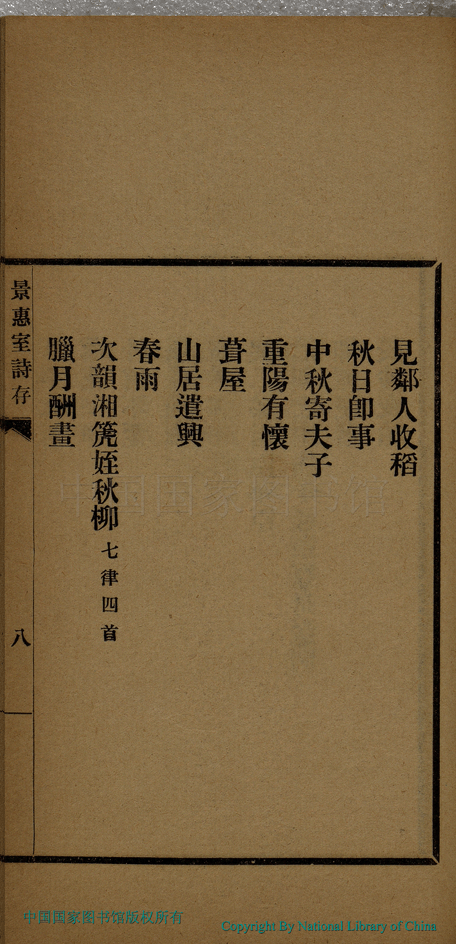 見鄰人收稻
秋日卽事
中秋寄夫子
重陽有懷
葺屋
山居遣興
春雨
次韻湘箎姪秋柳 七律四首
臘月酬畫
景惠室詩存
八
中国国家图书馆
中国国家图书馆版权所有
Copyright By National Library of China